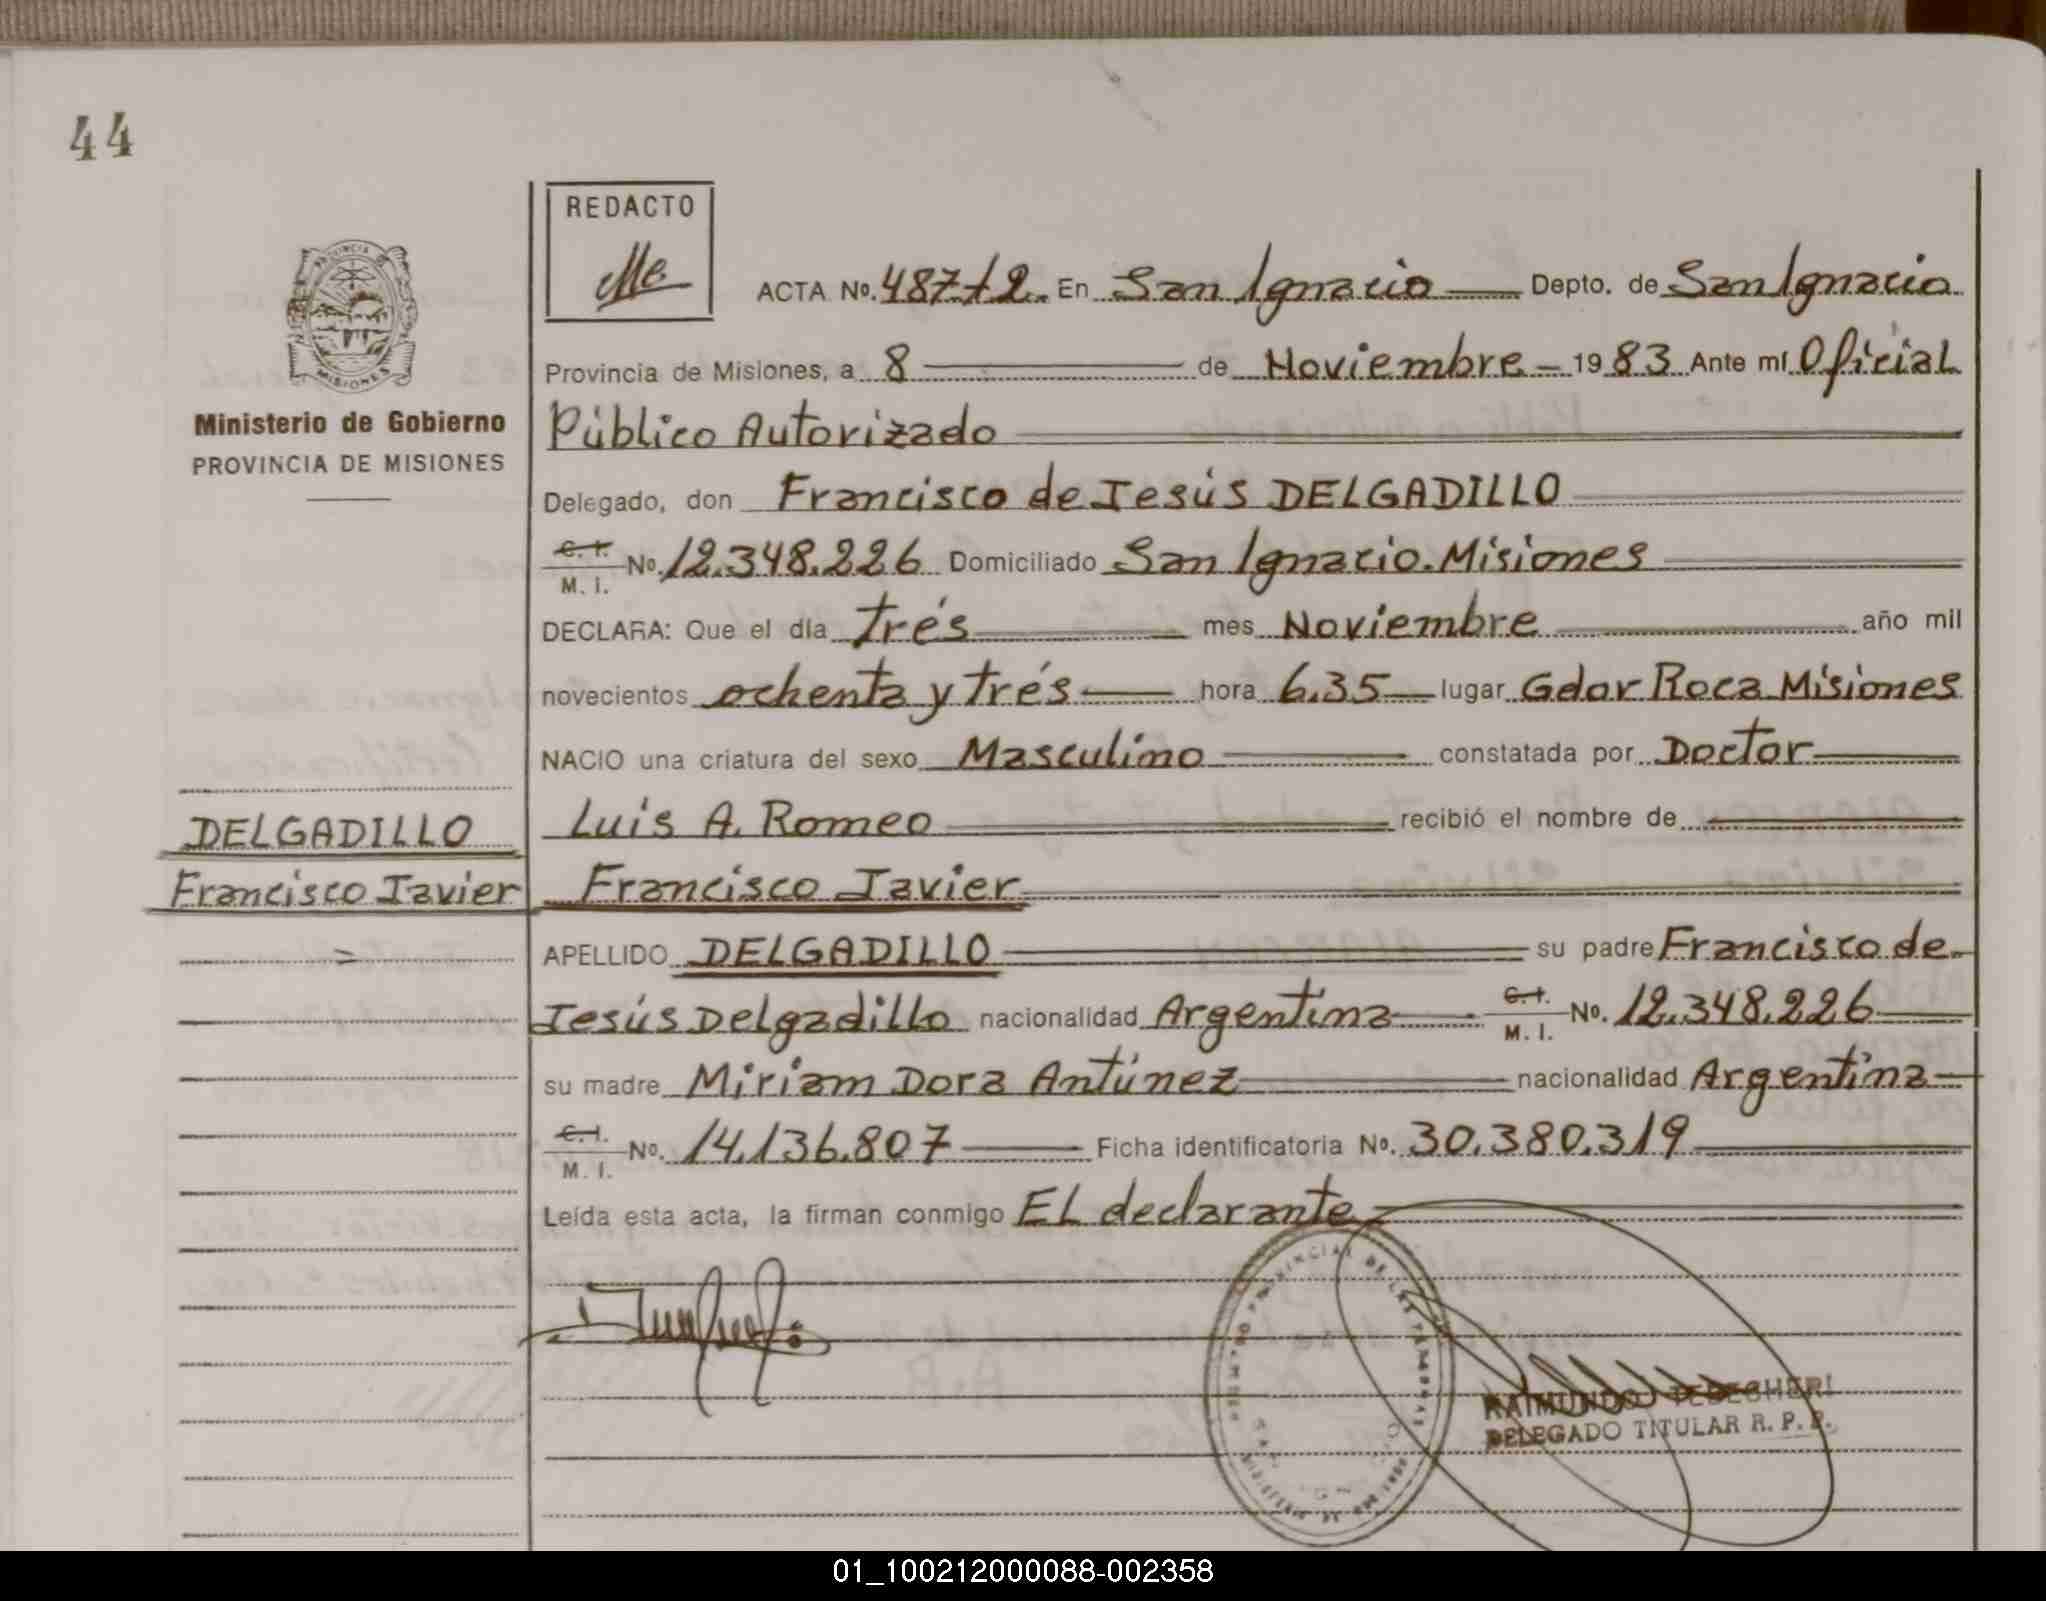 44
REDACTO
ACTA No. 487-t2. En San Ignacio Depto. de San Ignacio
Provincia de Misiones, a 8 de Noviembre - 1983 Ante mí Oficial
Ministerio de Gobierno
PROVINCIA DE MISIONES
Público Autorizado
Delegado, don Francisco de Jesús DELGADILLO
C. I. M. I. No. 12.348.226 Domiciliado San Ignacio. Misiones
DECLARA: Que el día trés mes Noviembre año mil
novecientos ochenta y trés hora 6.35 lugar Gdor Roca Misiones
NACIO una criatura del sexo Masculino constatada por Doctor
Luis A. Romeo recibió el nombre de
DELGADILLO
Francisco Javier
Francisco Javier
APELLIDO DELGADILLO su padre Francisco de
Jesús Delgadillo nacionalidad Argentina C. I. M. I. No. 12.348.226
su madre Miriam Dora Antúnez nacionalidad Argentina
C. I. M. I. No. 14.136.807 Ficha identificatoria No. 30.380.319
Leída esta acta, la firman conmigo El declarante
RAIMUNDO
DELEGADO TITULAR R. P. P.
01_100212000088-002358